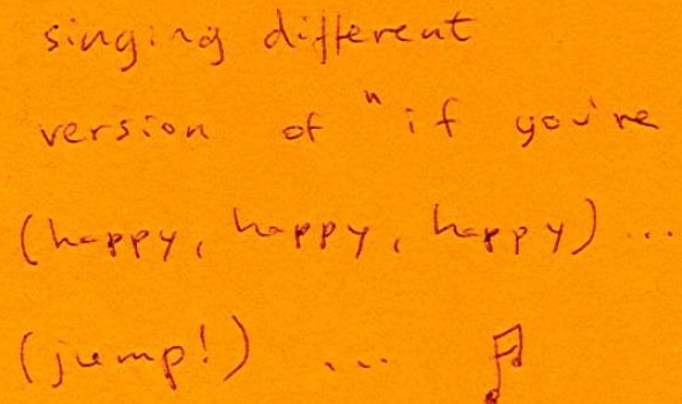 singing different
version of "if you're
(happy, happy, happy) ...
(jump!) ... ♫